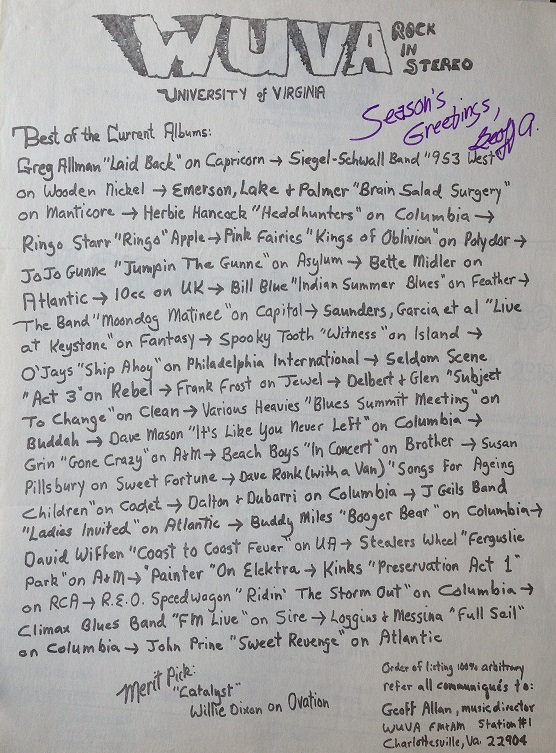 WUVA ROCK
IN
STEREO
UNIVERSITY of VIRGINIA
Season's
Greetings,
Geoff A.
Best of the Current Albums:
Greg Allman "Laid Back" on Capricorn → Siegel-Schwall Band "953 West"
on Wooden Nickel → Emerson, Lake & Palmer "Brain Salad Surgery"
on Manticore → Herbie Hancock "Headhunters" on Columbia →
Ringo Starr "Ringo" Apple → Pink Fairies "Kings of Oblivion" on Polydor →
JoJo Gunne "Jumpin The Gunne" on Asylum → Bette Midler on
Atlantic → 10cc on UK → Bill Blue "Indian Summer Blues" on Feather →
The Band "Moondog Matinee" on Capitol → Saunders, Garcia et al "Live
at Keystone" on Fantasy → Spooky Tooth "Witness" on Island →
O'Jays "Ship Ahoy" on Philadelphia International → Seldom Scene
"Act 3" on Rebel → Frank Frost on Jewel → Delbert & Glen "Subject
To Change" on Clean → Various Heavies "Blues Summit Meeting" on
Buddah → Dave Mason "It's Like You Never Left" on Columbia →
Grin "Gone Crazy" on A&M → Beach Boys "In Concert" on Brother → Susan
Pillsbury on Sweet Fortune → Dave Ronk (with a Van) "Songs For Ageing
Children" on Cadet → Dalton & Dubarri on Columbia → J Geils Band
"Ladies Invited" on Atlantic → Buddy Miles "Booger Bear" on Columbia →
David Wiffen "Coast to Coast Fever" on UA → Stealers Wheel "Ferguslie
Park" on A&M → "Painter" On Elektra → Kinks "Preservation Act 1"
on RCA → R.E.O. Speedwagon "Ridin' The Storm Out" on Columbia →
Climax Blues Band "FM Live" on Sire → Loggins & Messina "Full Sail"
on Columbia → John Prine "Sweet Revenge" on Atlantic
Merit Pick:
"Catalyst"
Willie Dixon on Ovation
Order of listing 100% arbitrary
refer all communiqués to:
Geoff Allan, music director
WUVA FM & AM Station #1
Charlottesville, Va. 22904